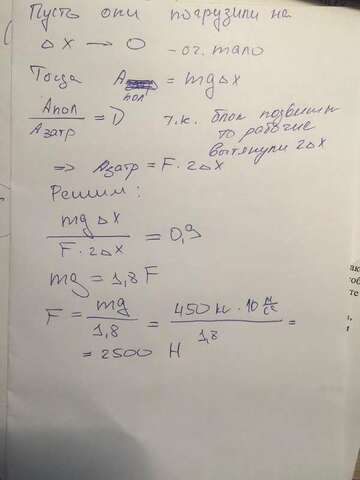 Пусть они погрузили на
Δx → 0 - оч. мало
Тогда A пол = mgΔx
Aпол / Aзатр = D т.к. блок подвешн
то рабочие
вытянули 2Δx
=> Aзатр = F · 2Δx
Решим:
mgΔx / F · 2Δx = 0,9
mg = 1,8 F
F = mg / 1,8 = 450 кг · 10 Н/кг / 1,8 =
= 2500 Н